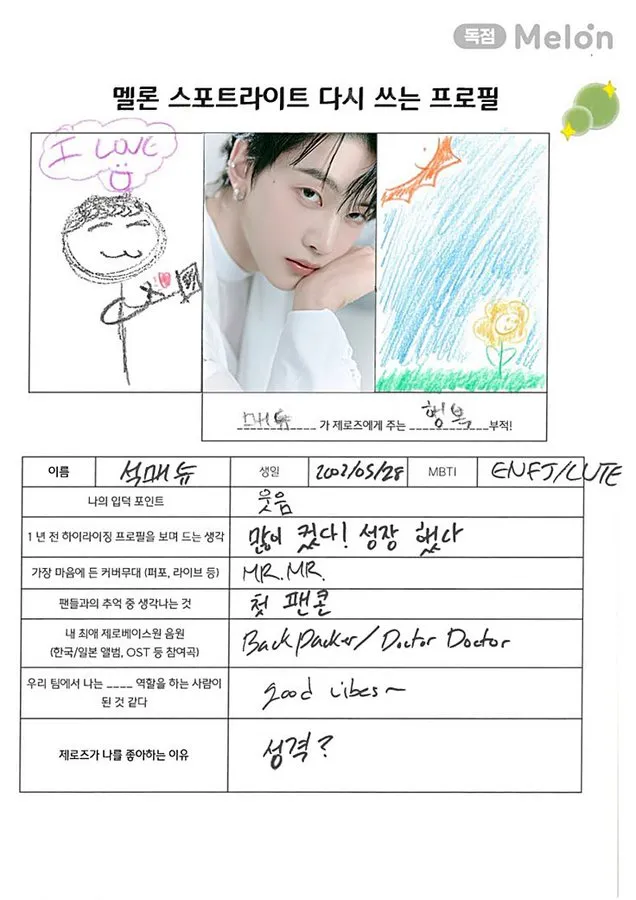 독점 Melon
멜론 스포트라이트 다시 쓰는 프로필
I LOVE
매튜 가 제로즈에게 주는 행복 부적!
이름 석매튜 생일 2002/05/28 MBTI ENFJ/CUTE
나의 입덕 포인트 웃음
1년 전 하이라이징 프로필을 보며 드는 생각 많이 컸다! 성장 했다
가장 마음에 든 커버무대 (퍼포, 라이브 등) MR.MR.
팬들과의 추억 중 생각나는 것 첫 팬콘
내 최애 제로베이스원 음원 BackPacker/Doctor Doctor
(한국/일본 앨범, OST 등 참여곡)
우리 팀에서 나는 ____ 역할을 하는 사람이 good vibes~
된 것 같다
제로즈가 나를 좋아하는 이유 성격?